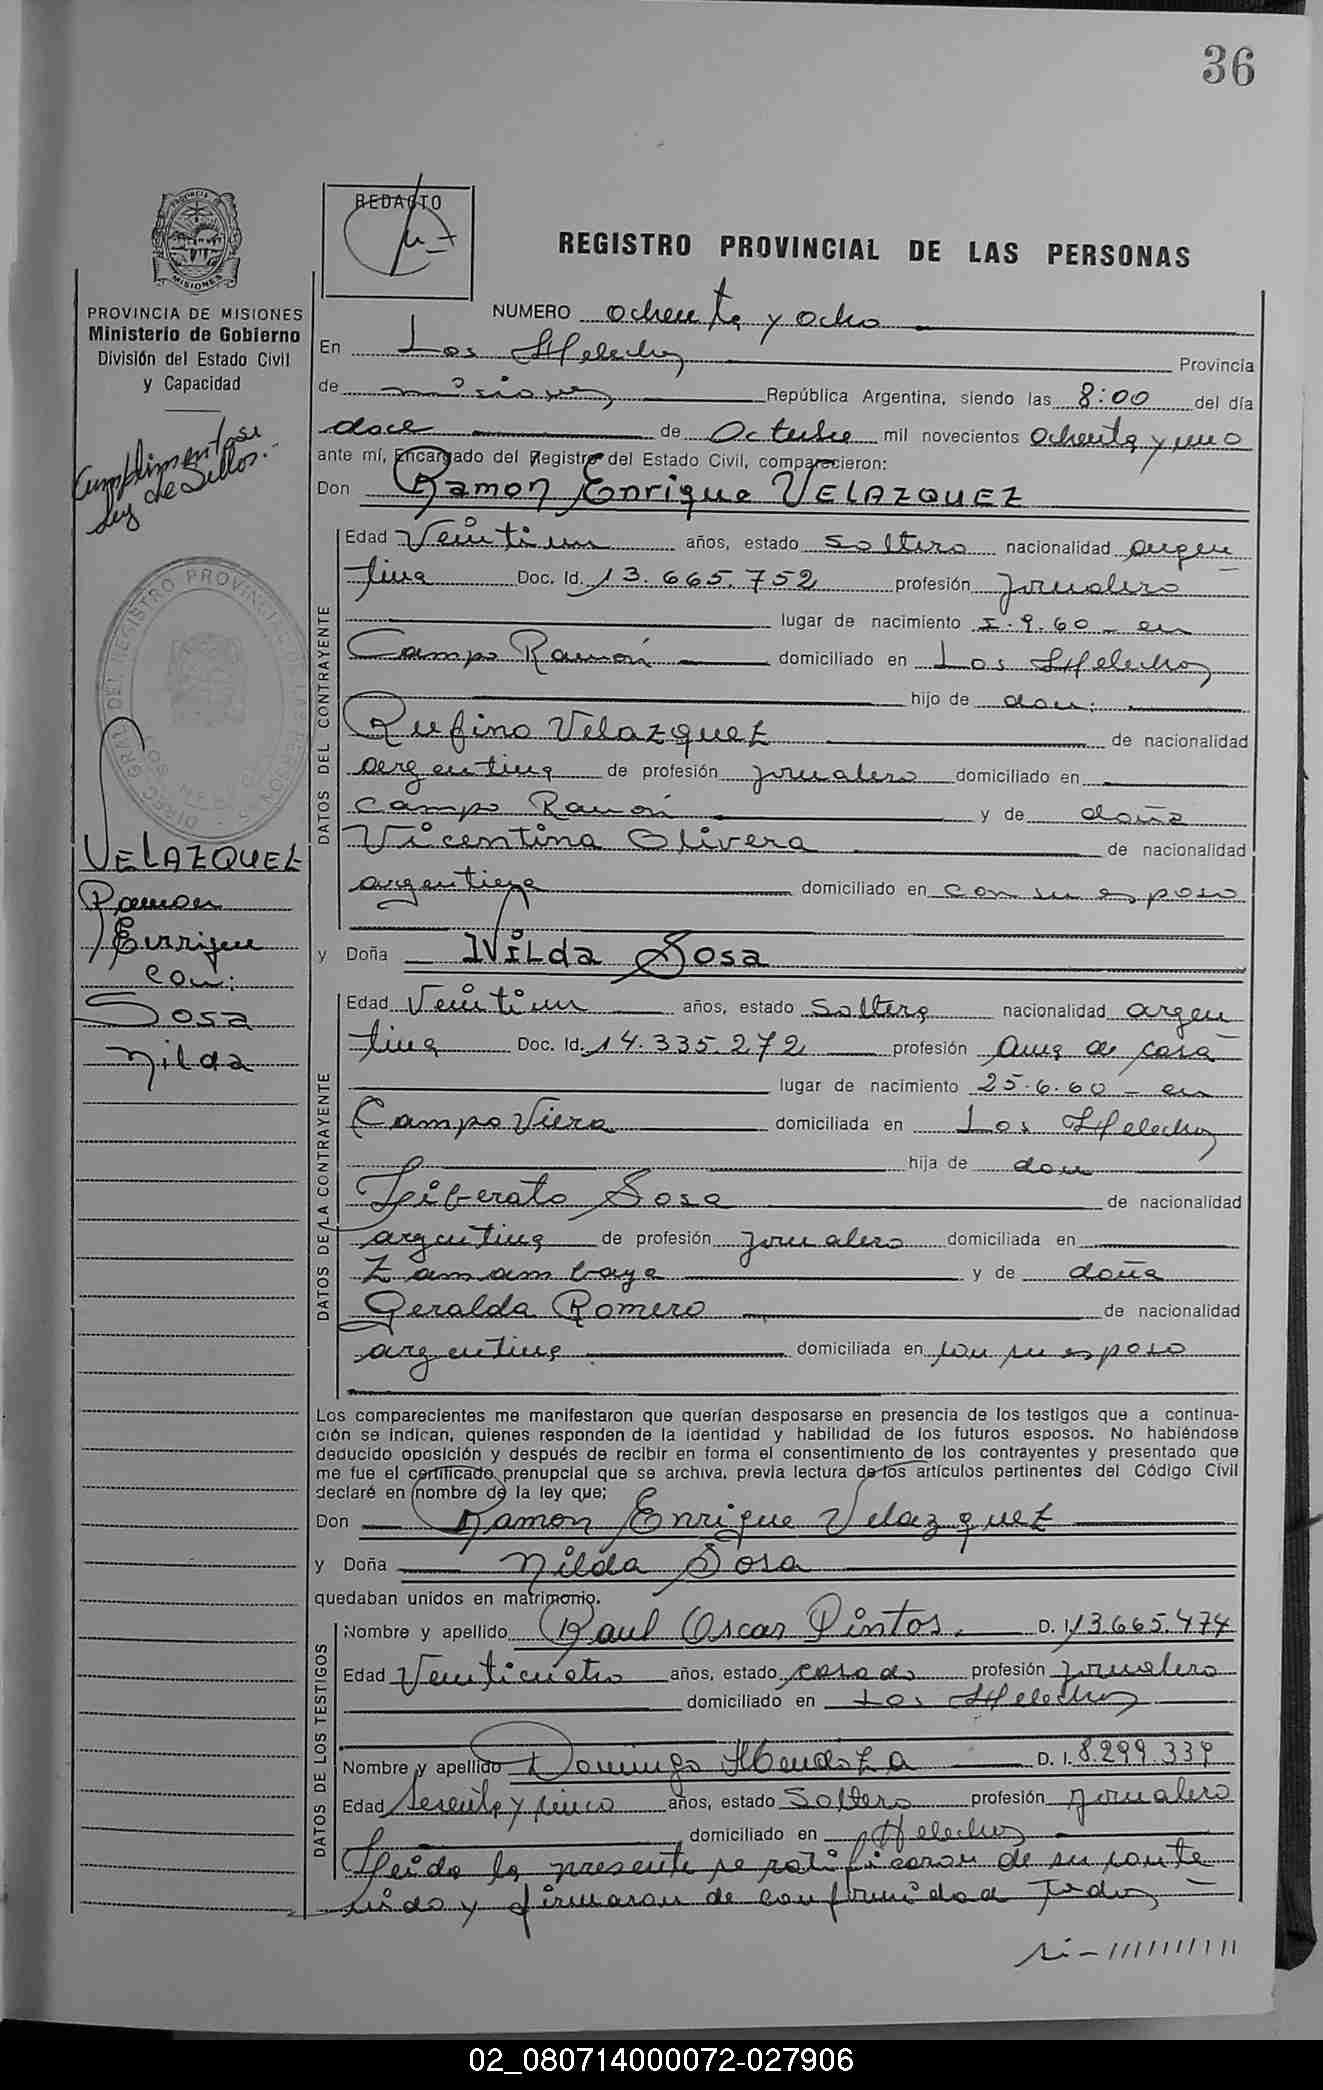 36
REDACTO
REGISTRO PROVINCIAL DE LAS PERSONAS
PROVINCIA DE MISIONES
Ministerio de Gobierno
División del Estado Civil
y Capacidad
Cumplimentose
ley de Sellos.
VELAZQUEZ
Ramon
Enrique
con:
Sosa
Nilda
NUMERO ochenta y ocho
En Los Helechos Provincia
de misiones República Argentina, siendo las 8:00 del día
doce de Octubre mil novecientos Ochenta y uno
ante mí, Encargado del Registro del Estado Civil, comparecieron:
Don Ramon Enrique VELAZQUEZ
DATOS DEL CONTRAYENTE
Edad Veintiun años, estado soltero nacionalidad argen
tina Doc. Id. 13.665.752 profesión Jornalero
lugar de nacimiento 9.60 - en
Campo Ramón domiciliado en Los Helechos
hijo de don:
Rufino Velazquez de nacionalidad
argentina de profesión jornalero domiciliado en
Campo Ramón y de doña
Vicentina Olivera de nacionalidad
argentina domiciliado en con su esposo
y Doña Nilda Sosa
DATOS DE LA CONTRAYENTE
Edad Veintiun años, estado soltera nacionalidad argen
tina Doc. Id. 14.335.272 profesión Ama de casa
lugar de nacimiento 25.6.60 - en
Campo Viera domiciliada en Los Helechos
hija de don
Liberato Sosa de nacionalidad
argentina de profesión jornalero domiciliada en
Zamambaya y de doña
Geralda Romero de nacionalidad
argentina domiciliada en con su esposo
Los comparecientes me manifestaron que querían desposarse en presencia de los testigos que a continua-
ción se indican, quienes responden de la identidad y habilidad de los futuros esposos. No habiéndose
deducido oposición y después de recibir en forma el consentimiento de los contrayentes y presentado que
me fue el certificado prenupcial que se archiva, previa lectura de los artículos pertinentes del Código Civil
declaré en nombre de la ley que;
Don Ramon Enrique Velazquez
y Doña Nilda Sosa
quedaban unidos en matrimonio.
DATOS DE LOS TESTIGOS
Nombre y apellido Raul Oscar Pintos. D. I. 13.665.474
Edad Veinticuatro años, estado casado profesión jornalero
domiciliado en Los Helechos
Nombre y apellido Domingo Mendoza D. I. 8.299.339
Edad Sesenta y cinco años, estado Soltero profesión Jornalero
domiciliado en Helechos
Leida la presente se ratificaron de su conte
nido y firmaron de conformidad Todos
02_080714000072-027906